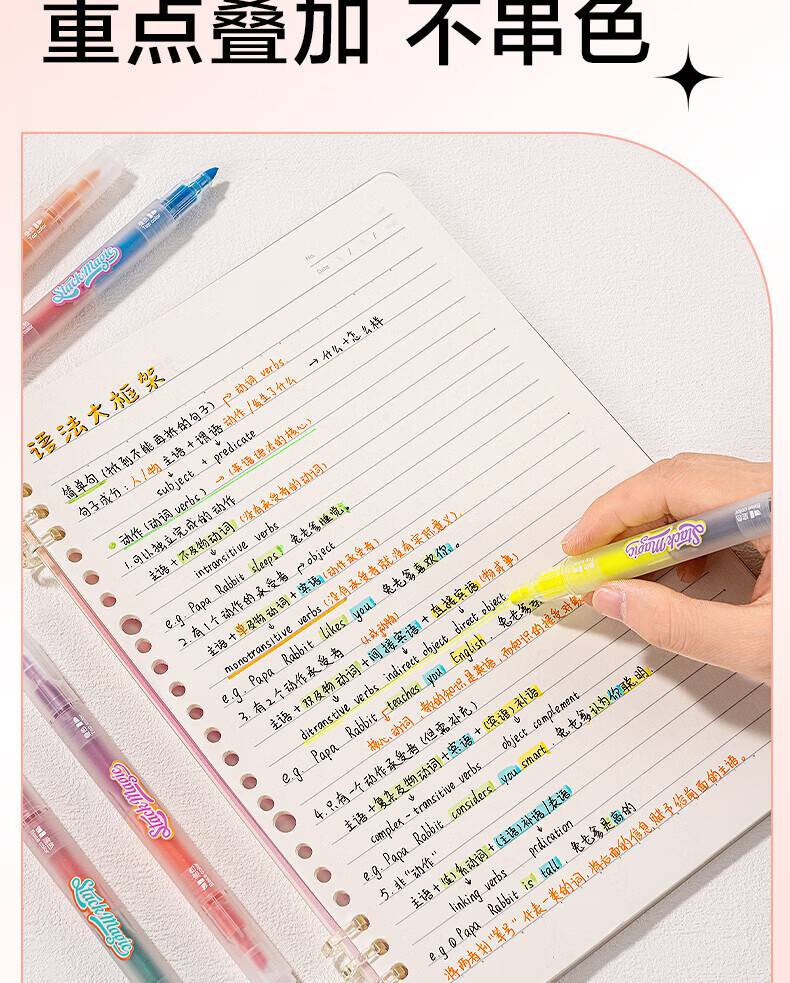 重点叠加 不串色
No.
Date
Stack Magic
语法大框架
简单句(找到不能再拆的句子) 动词 verbs → 什么+怎么样
句子成分:人/物 主语+谓语 动作/发生了什么
subject + predicate
动作(动词verbs) →(英语语法的核心)
1.可以独立完成的动作
主语+不及物动词(没有承受者的动词)
intransitive verbs
e.g. Papa Rabbit sleeps. 兔老爹睡觉。
2.有1个动作的承受者 object
主语+单及物动词+宾语(动作承受者)
monotransitive verbs (没有承受者就没有实际意义).
e.g. Papa Rabbit likes you 兔老爹喜欢你。
3.有2个动作承受者
主语+双及物动词+间接宾语+直接宾语(物或事)
ditranstive verbs indirect object direct object
e.g. Papa Rabbit teaches you English. 兔老爹
4.只有一个动作承受者(但需补充)
主语+复杂及物动词+宾语+(宾语)补语
complex-transitive verbs object complement
e.g. Papa Rabbit considers you smart. 兔老爹认为你聪明.
5.非"动作"
主语+(连)系动词+(主语)补语/表语
linking verbs prdication
e.g Papa Rabbit is tall. 兔老爹是高的
将两者划"等号"代表一类的词,将后面的信息赋予给前面的主语。
Stack Magic
Stack Magic
Stack Magic